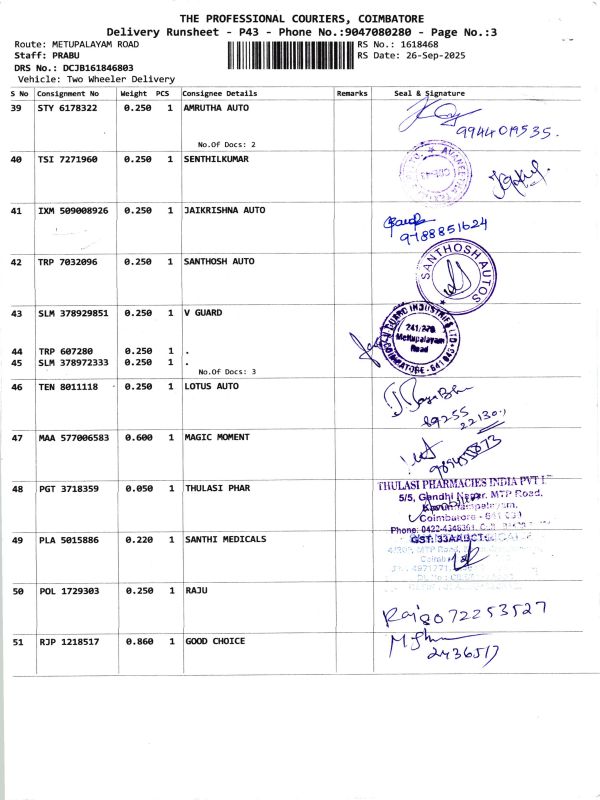 THE PROFESSIONAL COURIERS, COIMBATORE
Delivery Runsheet - P43 - Phone No.:9047080280 - Page No.:3
Route: METUPALAYAM ROAD
RS No.: 1618468
Staff: PRABU
RS Date: 26-Sep-2025
DRS No.: DCJB161846803
Vehicle: Two Wheeler Delivery
S No Consignment No Weight PCS Consignee Details Remarks Seal & Signature
39 STY 6178322 0.250 1 AMRUTHA AUTO
9944019535.
No.Of Docs: 2
40 TSI 7271960 0.250 1 SENTHILKUMAR
41 IXM 509008926 0.250 1 JAIKRISHNA AUTO
9788851624
42 TRP 7032096 0.250 1 SANTHOSH AUTO
SANTHOSH AUTOS
43 SLM 378929851 0.250 1 V GUARD
V GUARD INDUSTRIES LTD
241/37B
Mettupalayam
Road
COIMBATORE - 641 043
44 TRP 607280 0.250 1 .
45 SLM 378972333 0.250 1 .
No.Of Docs: 3
46 TEN 8011118 0.250 1 LOTUS AUTO
89255
22130
47 MAA 577006583 0.600 1 MAGIC MOMENT
48 PGT 3718359 0.050 1 THULASI PHAR
THULASI PHARMACIES INDIA PVT L
5/5, Gandhi Nagar, MTP Road,
Coimbatore -
Phone: 0422-4348361,
49 PLA 5015886 0.220 1 SANTHI MEDICALS
GST: 33AABCT
MTP Road,
50 POL 1729303 0.250 1 RAJU
Raj 8072253527
51 RJP 1218517 0.860 1 GOOD CHOICE
2436517